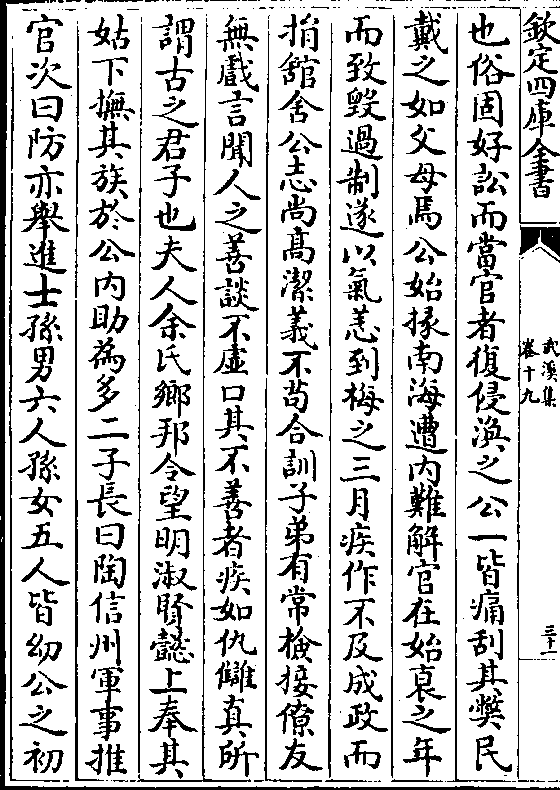 欽定四庫全書
武溪集
卷十九
三十一
也俗固好訟而當官者復侵漁之公一皆痛刮其獘民
戴之如父母焉公始掾南海遭内難解官在始衰之年
而致毀過制遂以氣恙到梅之三月疾作不及成政而
捐舘舍公志尚高潔義不苟合訓子弟有常檢接僚友
無戲言聞人之善談不虚口其不善者疾如仇讎真所
謂古之君子也夫人余氏鄉邦令望明淑賢懿上奉其
姑下撫其族於公内助為多二子長曰陶信州軍事推
官次曰防亦舉進士孫男六人孫女五人皆幼公之初